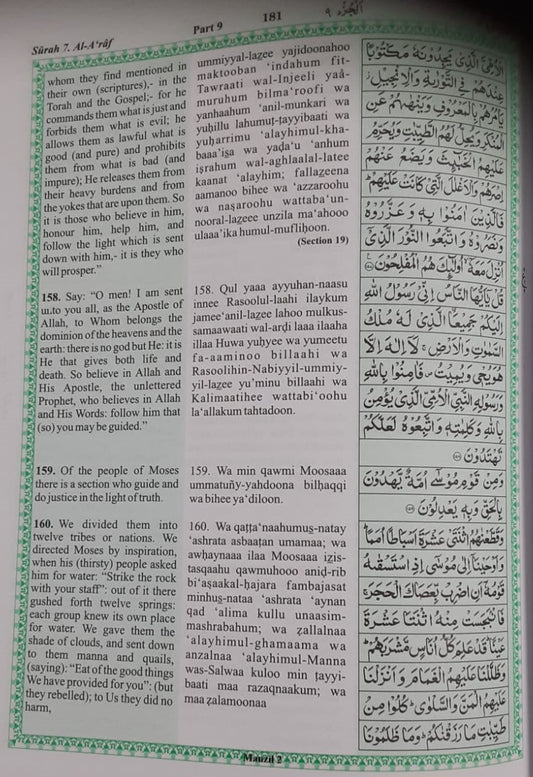 Sūrah 7. Al-A‘râf
Part 9
181
الجزء ٩
whom they find mentioned in
their own (scriptures),- in the
Torah and the Gospel;- for he
commands them what is just and
forbids them what is evil; he
allows them as lawful what is
good (and pure) and prohibits
them from what is bad (and
impure); He releases them from
their heavy burdens and from
the yokes that are upon them. So
it is those who believe in him,
honour him, help him, and
follow the light which is sent
down with him,- it is they who
will prosper.”
158. Say: “O men! I am sent
u.to you all, as the Apostle of
Allah, to Whom belongs the
dominion of the heavens and the
earth: there is no god but He: it is
He that gives both life and
death. So believe in Allah and
His Apostle, the unlettered
Prophet, who believes in Allah
and His Words: follow him that
(so) you may be guided.”
159. Of the people of Moses
there is a section who guide and
do justice in the light of truth.
160. We divided them into
twelve tribes or nations. We
directed Moses by inspiration,
when his (thirsty) people asked
him for water: “Strike the rock
with your staff”: out of it there
gushed forth twelve springs:
each group knew its own place
for water. We gave them the
shade of clouds, and sent down
to them manna and quails,
(saying): “Eat of the good things
We have provided for you”: (but
they rebelled); to Us they did no
harm,
ummiyyal-lazee yajidoonahoo
maktooban ‘indahum fit-
Tawraati wal-Injeeli yaā-
muruhum bilma‘roofi wa
yanhaahum ‘anil-munkari wa
yuḥillu lahumuṭ-ṭayyibaati wa
yuḥarrimu ‘alayhimul-kha-
baaa’iṣa wa yaḍa‘u ‘anhum
iṣrahum wal-aghlaalal-latee
kaanat ‘alayhim; fallazeena
aamanoo bihee wa ‘azzaroohu
wa naṣaroohu wattaba‘un-
nooral-lazeee unzila ma‘ahooo
ulaaa’ika humul-mufliḥoon.
(Section 19)
158. Qul yaaa ayyuhan-naasu
innee Rasoolul-laahi ilaykum
jamee‘anil-lazee lahoo mulkus-
samaawaati wal-arḍi laaa ilaaha
illaa Huwa yuḥyee wa yumeetu
fa-aaminoo billaahi wa
Rasoolihin-Nabiyyil-ummiy-
yil-lazee yu’minu billaahi wa
Kalimaatihee wattabi‘oohu
la‘allakum tahtadoon.
159. Wa min qawmi Moosaaa
ummatuñy-yahdoona bilḥaqqi
wa bihee ya‘diloon.
160. Wa qaṭṭa‘naahumuṣ-natay
‘ashrata asbaaṭan umamaa; wa
awḥaynaaa ilaa Moosaaa iẓis-
tasqaahu qawmuhooo aniḍ-rib
bi‘aṣaakal-ḥajara fambajasat
minhuṣ-nataa ‘ashrata ‘aynan
qad ‘alima kullu unaasim-
mashrabahum; wa ẓallalnaa
‘alayhimul-ghamaama wa
anzalnaa ‘alayhimul-Manna
was-Salwaa kuloo min ṭayyi-
baati maa razaqnaakum; wa
maa ẓalamoonaa
الْأُمِّيَّ الَّذِي يَجِدُونَهُ مَكْتُوبًا
عِنْدَهُمْ فِي التَّوْرٰىةِ وَالْإِنْجِيلِ
يَأْمُرُهُمْ بِالْمَعْرُوفِ وَيَنْهٰىهُمْ عَنِ
الْمُنْكَرِ وَيُحِلُّ لَهُمُ الطَّيِّبٰتِ وَيُحَرِّمُ
عَلَيْهِمُ الْخَبٰٓئِثَ وَيَضَعُ عَنْهُمْ
إِصْرَهُمْ وَالْأَغْلٰلَ الَّتِي كَانَتْ عَلَيْهِمْ ؕ
فَالَّذِينَ اٰمَنُوا بِهٖ وَعَزَّرُوهُ
وَنَصَرُوهُ وَاتَّبَعُوا النُّورَ الَّذِيٓ
أُنْزِلَ مَعَهٗٓ أُولٰٓئِكَ هُمُ الْمُفْلِحُونَ ۝١٥٧
قُلْ يٰٓأَيُّهَا النَّاسُ إِنِّي رَسُولُ اللّٰهِ
إِلَيْكُمْ جَمِيعًا الَّذِي لَهٗ مُلْكُ
السَّمٰوٰتِ وَالْأَرْضِ ۚ لَآ إِلٰهَ إِلَّا
هُوَ يُحْيٖ وَيُمِيتُ ۪ فَاٰمِنُوا بِاللّٰهِ
وَرَسُولِهِ النَّبِيِّ الْأُمِّيِّ الَّذِي يُؤْمِنُ
بِاللّٰهِ وَكَلِمٰتِهٖ وَاتَّبِعُوهُ لَعَلَّكُمْ
تَهْتَدُونَ ۝١٥٨
وَمِنْ قَوْمِ مُوسٰٓى أُمَّةٌ يَّهْدُونَ
بِالْحَقِّ وَبِهٖ يَعْدِلُونَ ۝١٥٩
وَقَطَّعْنٰهُمُ اثْنَتَيْ عَشْرَةَ أَسْبَاطًا أُمَمًا ؕ
وَأَوْحَيْنَآ إِلٰى مُوسٰٓى إِذِ اسْتَسْقٰىهُ
قَوْمُهٗٓ أَنِ اضْرِبْ بِّعَصَاكَ الْحَجَرَ ۚ
فَانْبَجَسَتْ مِنْهُ اثْنَتَا عَشْرَةَ
عَيْنًا ؕ قَدْ عَلِمَ كُلُّ أُنَاسٍ مَّشْرَبَهُمْ ؕ
وَظَلَّلْنَا عَلَيْهِمُ الْغَمَامَ وَأَنْزَلْنَا
عَلَيْهِمُ الْمَنَّ وَالسَّلْوٰى ؕ كُلُوا مِنْ
طَيِّبٰتِ مَا رَزَقْنٰكُمْ ؕ وَمَا ظَلَمُونَا
Manzil 2